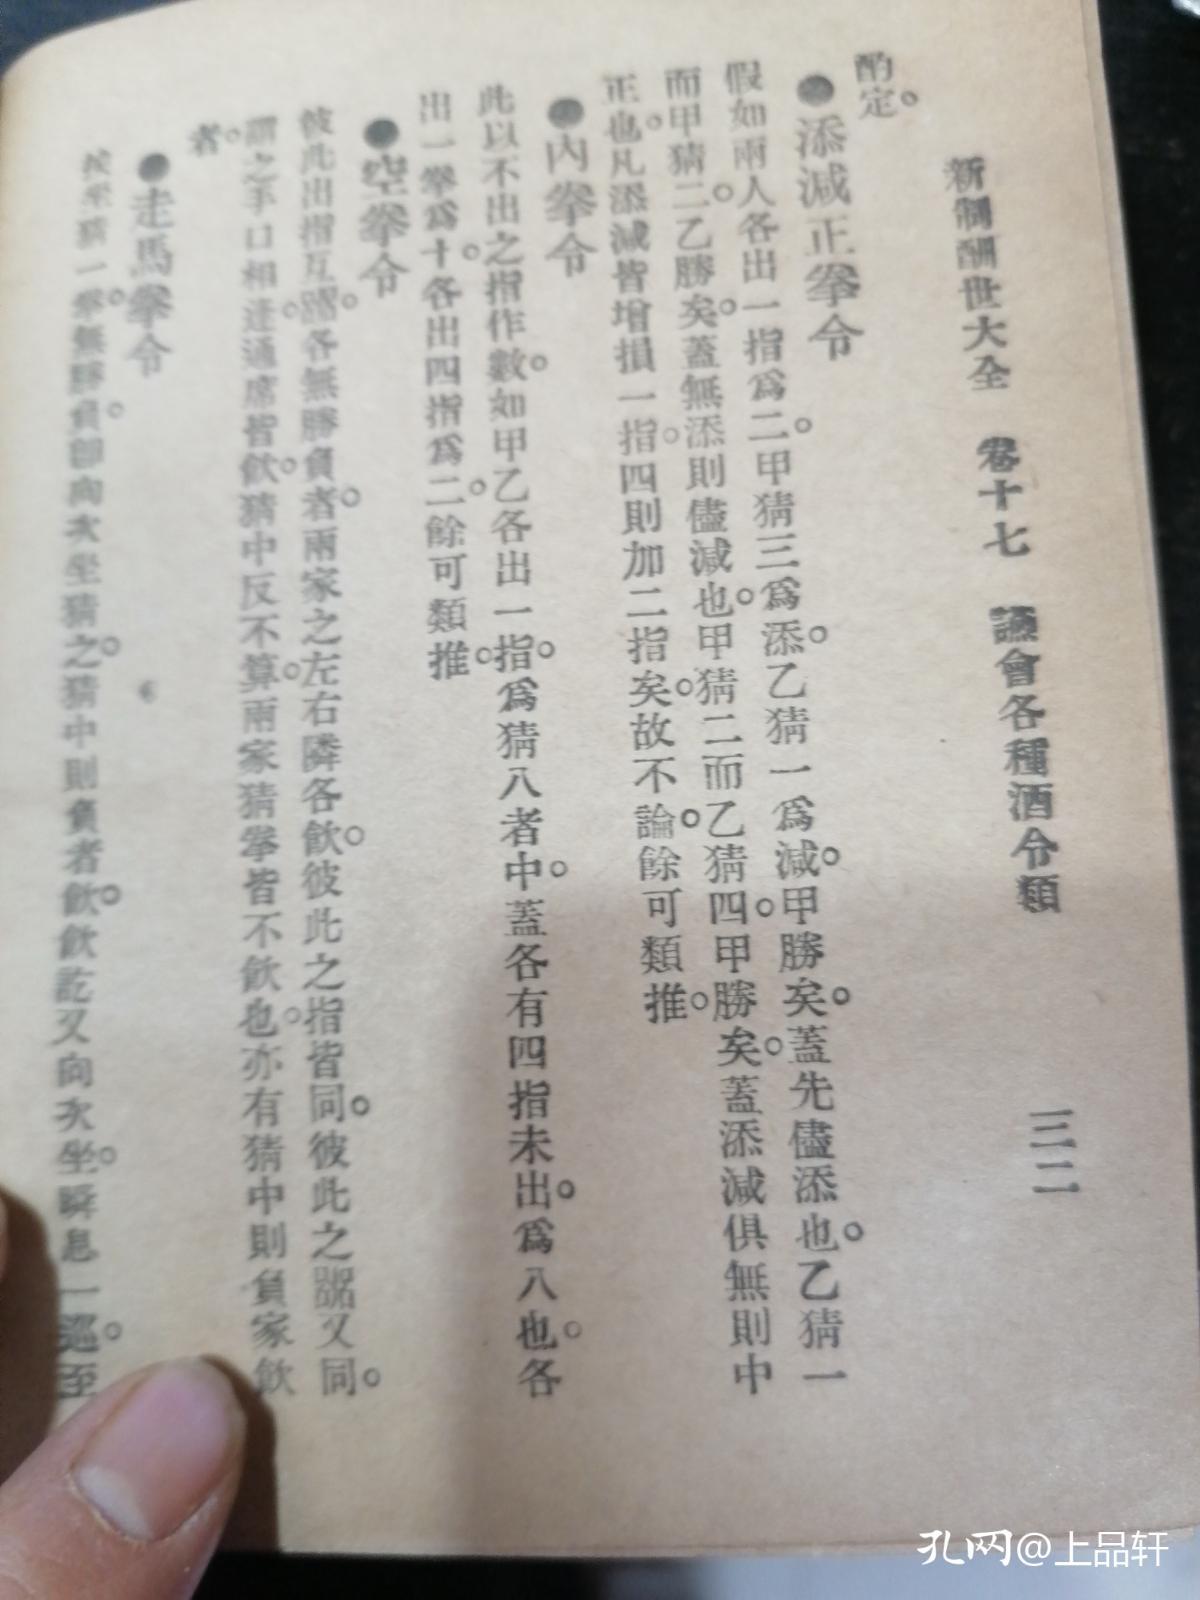 新制酬世大全　卷十七　讌會各種酒令類　三二
酌定。
●添減正拳令
假如兩人各出一指爲二。甲猜三爲添。乙猜一爲減。甲勝矣。蓋先儘添也。乙猜一
而甲猜二。乙勝矣。蓋無添則儘減也。甲猜二而乙猜四。甲勝矣。蓋添減俱無則中
正也。凡添減皆增損一指。四則加二指矣。故不論。餘可類推。
●內拳令
此以不出之指作數。如甲乙各出一指。爲猜八者中。蓋各有四指未出。爲八也。各
出一拳爲十。各出四指爲二。餘可類推。
●空拳令
彼此出指互猜。各無勝負者。兩家之左右隣各飲。彼此之指皆同。彼此之謎又同。
謂之手口相逢。通席皆飲。猜中反不算。兩家猜拳皆不飲也。亦有猜中則負家飲
者。
●走馬拳令
挨坐猜一拳。無勝負。卽向次坐猜之。猜中則負者飲。飲訖又向次坐。瞬息一巡。至
孔网@上品轩